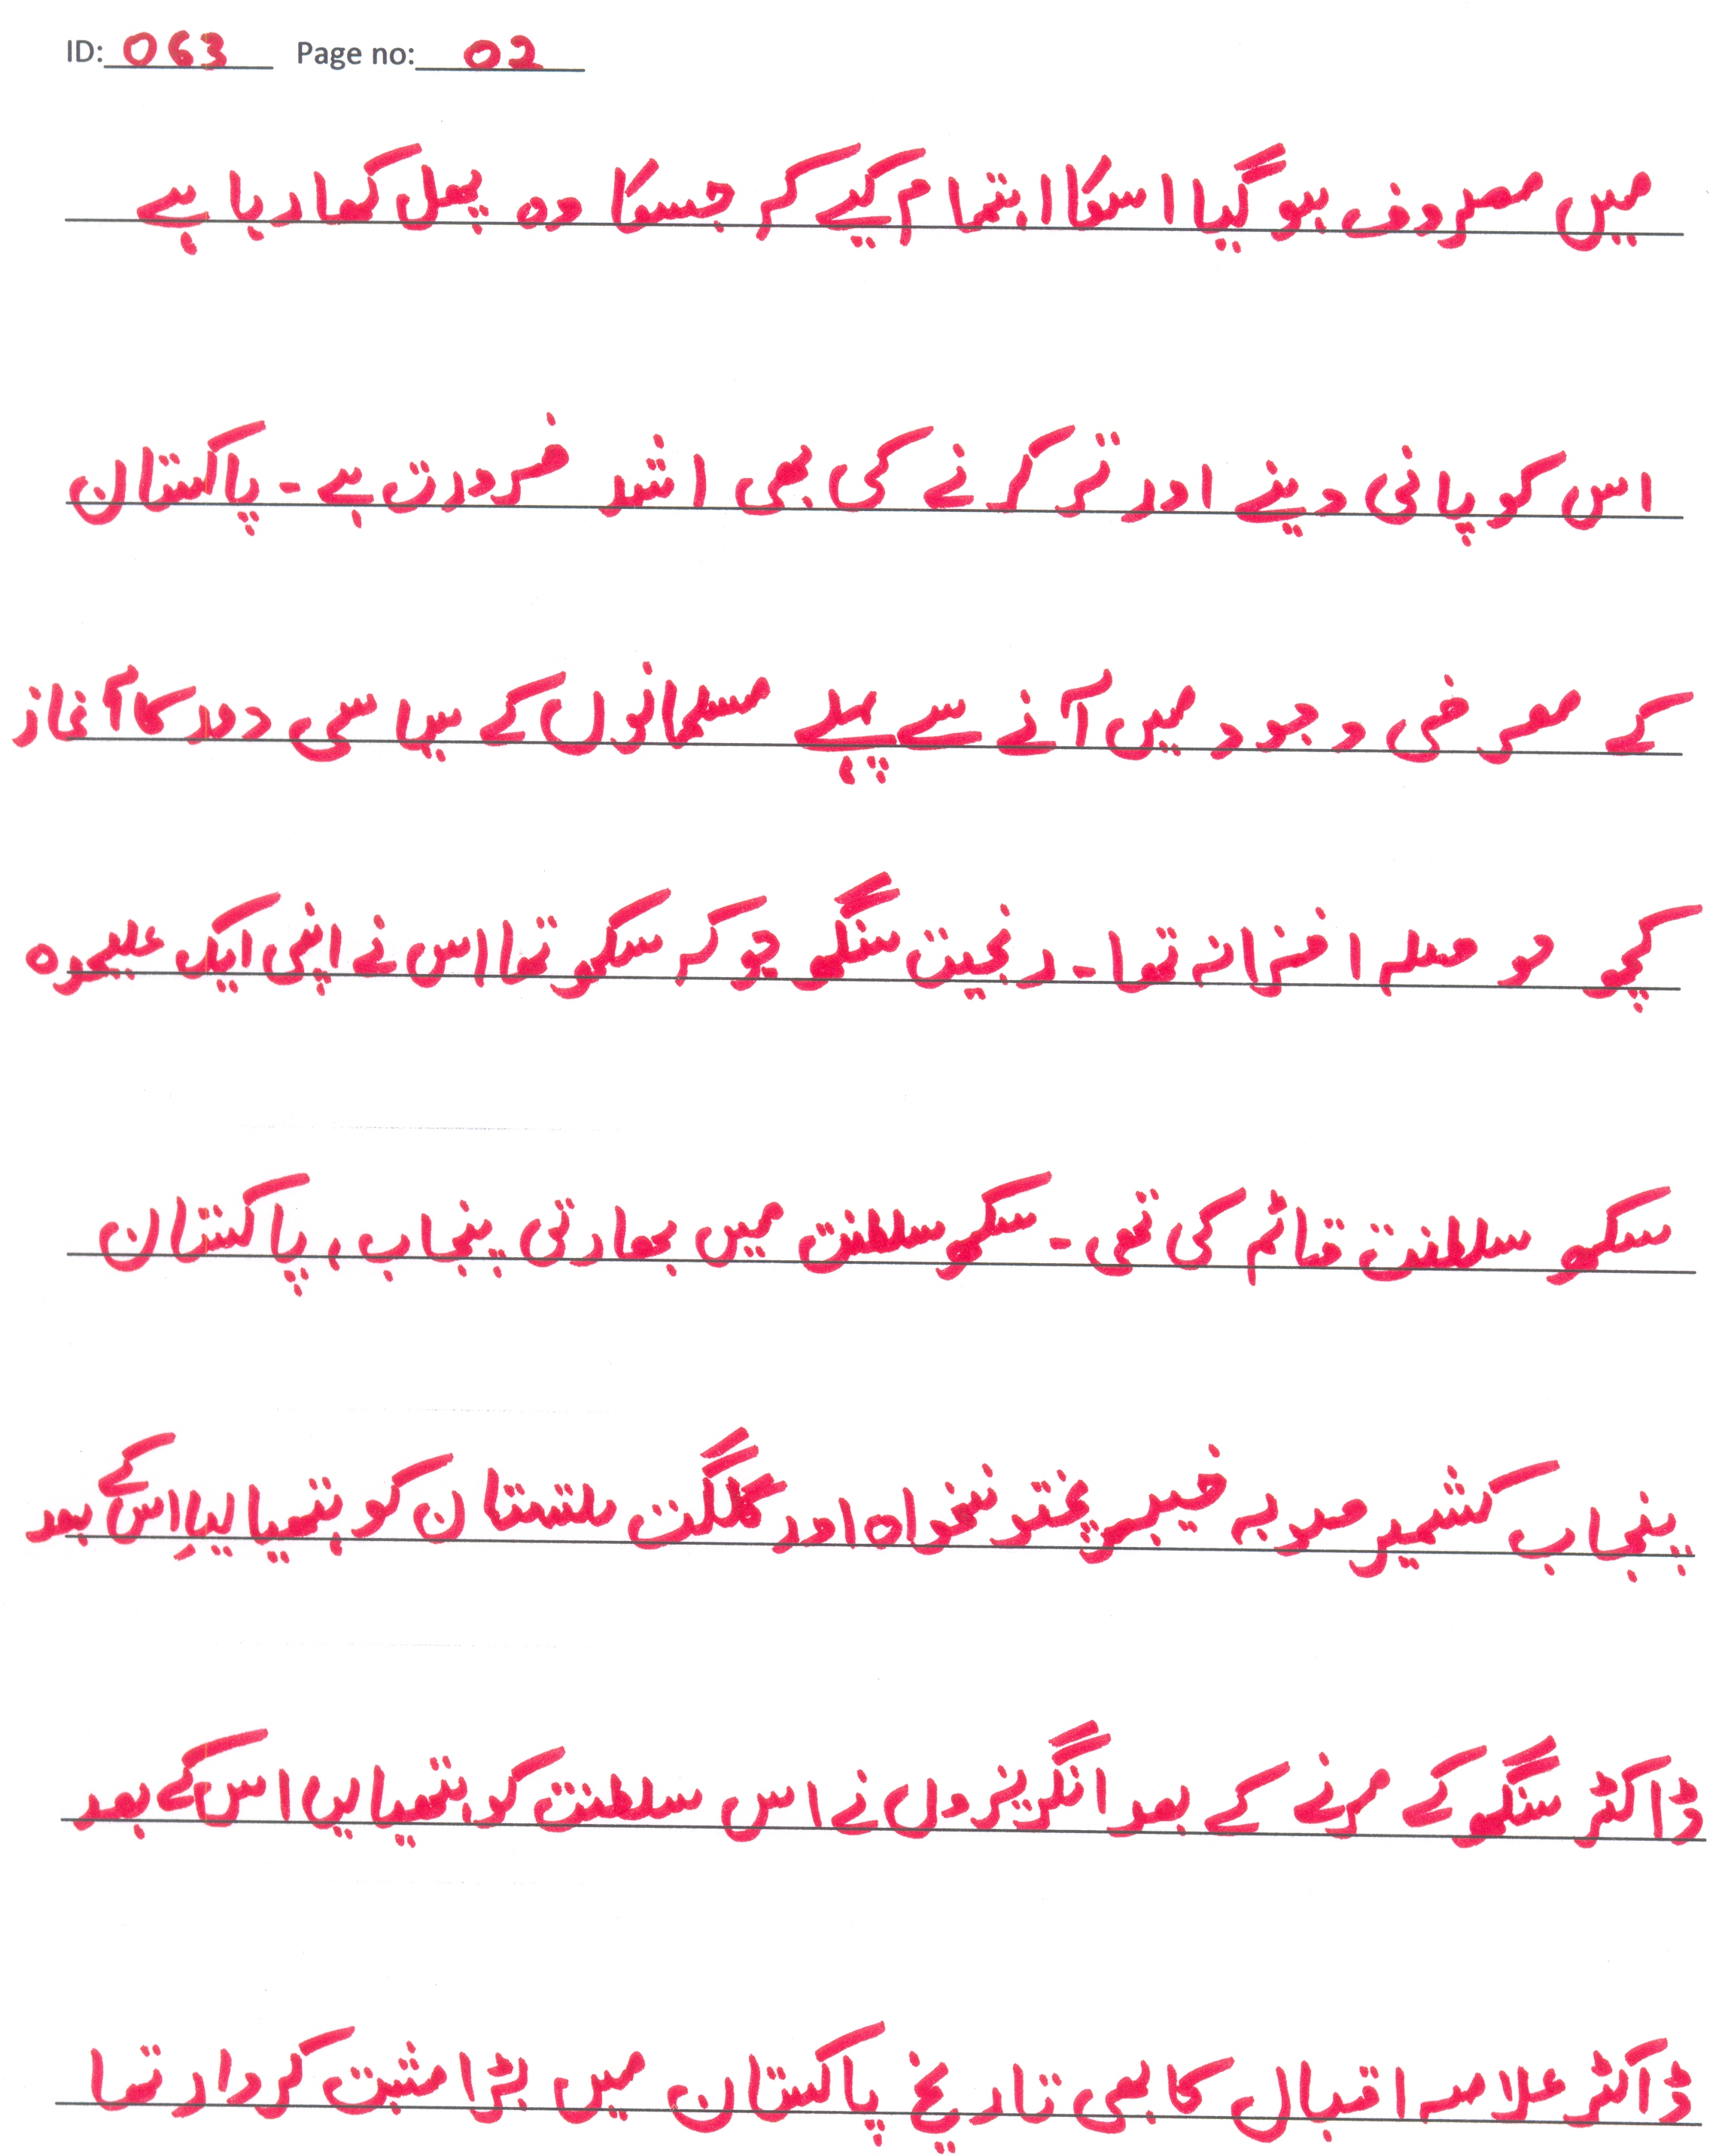 ID: 063 Page no: 02
میں مصروف ہو گیا اسکا اہتمام کیے کہ جسکا وہ پھل کھا رہا ہے
اس کو پانی دینے اور تر کرنے کی بھی اشد ضرورت ہے ۔ پاکستان
کے معرضی وجود میں آنے سے پہلے مسلمانوں کے سیاسی دور کا آغاز
کچھ حوصلہ افزانہ تھا ۔ رنجیت سنگھ جو کہ سکھ تھا اس نے اپنی ایک علیحدہ
سکھ سلطنت قائم کی تھی ۔ سکھ سلطنت میں بھارتی پنجاب ، پاکستان
پنجاب کشمیر صوبہ خیبر پختونخواہ اور گلگت بلتستان کو ہتھیا لیا اس کے بعد
ڈاکٹر سنگھ کے مرنے کے بعد انگریزوں نے اس سلطنت کو ہتھیا لیں اس کے بعد
ڈاکٹر علامہ اقبال کا بھی تاریخ پاکستان میں بڑا مثبت کردار تھا